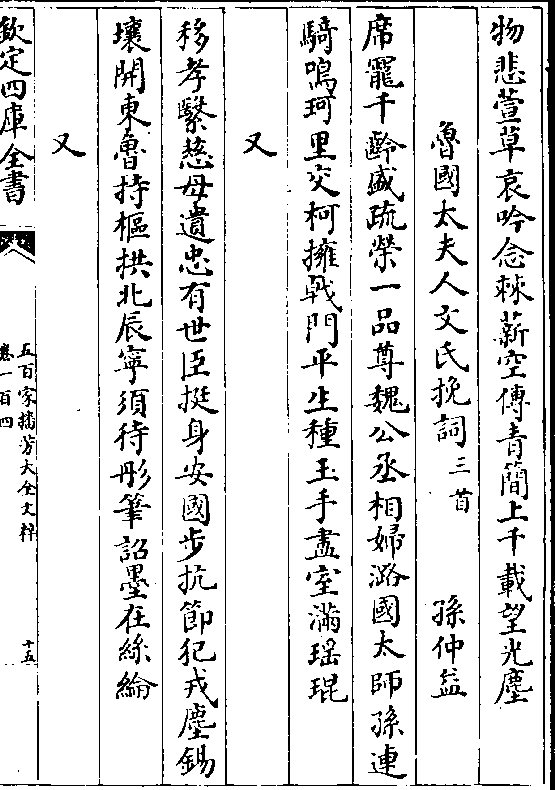 物悲萱草哀吟念棘薪空傳青簡上千載望光塵
魯國太夫人文氏挽詞三首　孫仲益
席寵千齡盛疏榮一品尊魏公丞相婦潞國太師孫連
騎鳴珂里交柯擁㦸門平生種玉手盡室滿瑶琨
又
移孝繄慈母遺忠有世臣挺身安國步抗節犯戎塵錫
壤開東魯持樞拱北辰寧須待彤筆詔墨在絲綸
又
欽定四庫全書
五百家播芳大全文粹
卷一百四
十五